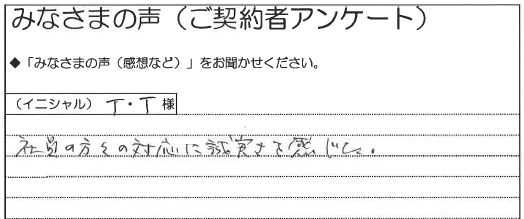 みなさまの声（ご契約者アンケート）
◆「みなさまの声（感想など）」をお聞かせください。
（イニシャル） T・T 様
社員の方々の対応に誠実さを感じた。